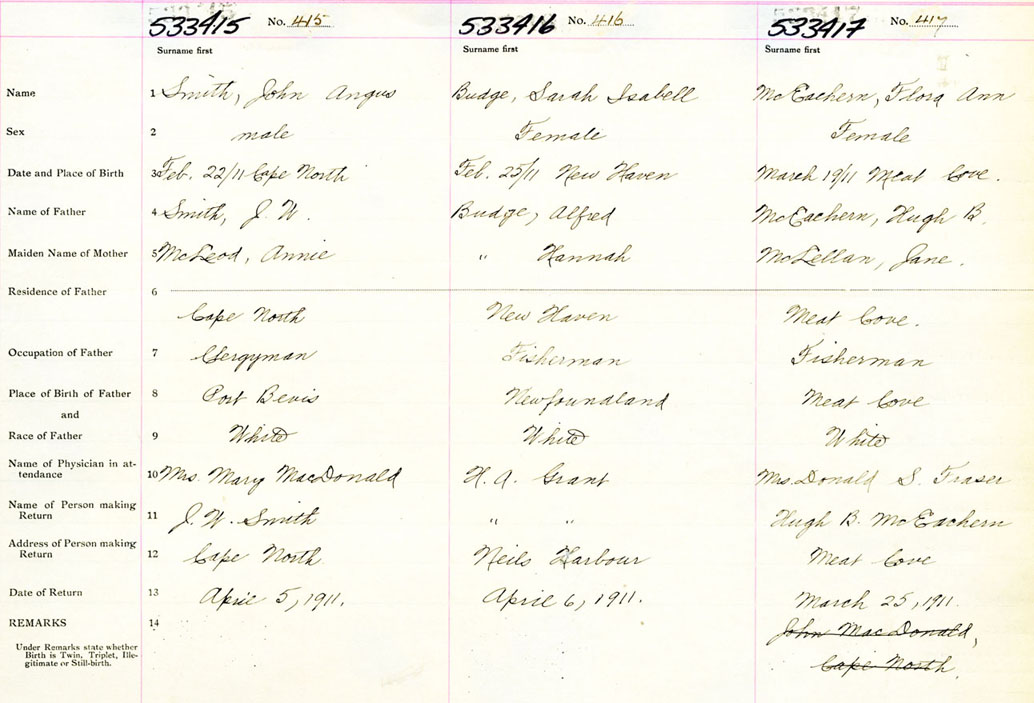 533415 No. 415 533416 No. 416 533417 No. 417
Surname first Surname first Surname first
Name 1 Smith, John Angus Budge, Sarah Isabell McEachern, Flora Ann
Sex 2 male Female Female
Date and Place of Birth 3 Feb. 22/11 Cape North Feb. 25/11 New Haven March 19/11 Meat Cove.
Name of Father 4 Smith, J. W. Budge, Alfred McEachern, Hugh B.
Maiden Name of Mother 5 McLeod, Annie " Hannah McLellan, Jane.
Residence of Father 6
Cape North New Haven Meat Cove.
Occupation of Father 7 Clergyman Fisherman Fisherman
Place of Birth of Father 8 Port Bevis Newfoundland Meat Cove
and
Race of Father 9 White White White
Name of Physician in at-
tendance 10 Mrs. Mary MacDonald H. A. Grant Mrs. Donald S. Fraser
Name of Person making
Return 11 J. W. Smith " " Hugh B. McEachern
Address of Person making
Return 12 Cape North Neils Harbour Meat Cove
Date of Return 13 April 5, 1911. April 6, 1911. March 25, 1911.
REMARKS 14 John MacDonald,
Under Remarks state whether
Birth is Twin, Triplet, Ille-
gitimate or Still-birth.
Cape North.